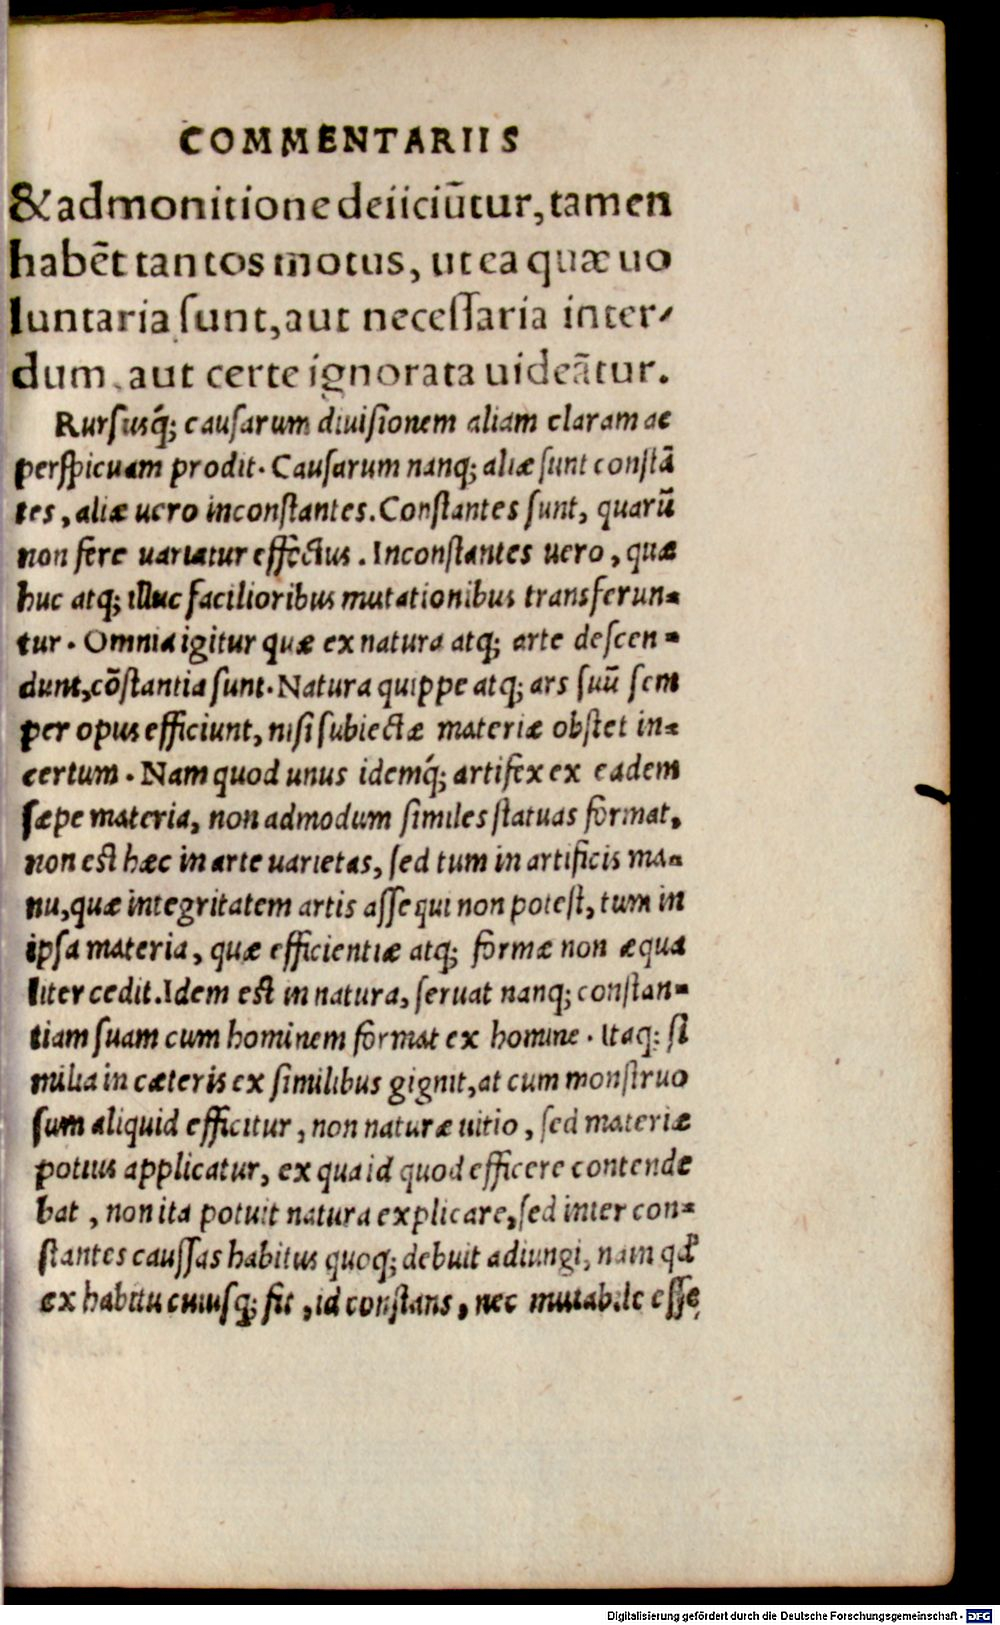 COMMENTARIIS
& admonitione deiiciūtur, tamen
habēt tantos motus, ut ea quæ uo
luntaria sunt, aut necessaria inter-
dum, aut certe ignorata uideātur.
Rursusq́; causarum diuisionem aliam claram ac
perspicuam prodit. Causarum nanq; aliæ sunt constā
tes, aliæ uero inconstantes. Constantes sunt, quarū
non fere uariatur effectus. Inconstantes uero, quæ
huc atq; illuc facilioribus mutationibus transferun=
tur. Omnia igitur quæ ex natura atq; arte descen=
dunt, cōstantia sunt. Natura quippe atq; ars suū sem
per opus efficiunt, nisi subiectæ materiæ obstet in=
certum. Nam quod unus idemq́; artifex ex eadem
sæpe materia, non admodum similes statuas format,
non est hæc in arte uarietas, sed tum in artificis ma=
nu, quæ integritatem artis assequi non potest, tum in
ipsa materia, quæ efficientiæ atq; formæ non æqua
liter cedit. Idem est in natura, seruat nanq; constan=
tiam suam cum hominem format ex homine. Itaq; si
milia in cæteris ex similibus gignit, at cum monstruo
sum aliquid efficitur, non naturæ uitio, sed materiæ
potius applicatur, ex qua id quod efficere contende
bat, non ita potuit natura explicare, sed inter con=
stantes caussas habitus quoq; debuit adiungi, nam qđ
ex habitu cuiusq; fit, id constans, nec mutabile esse
Digitalisierung gefördert durch die Deutsche Forschungsgemeinschaft - DFG